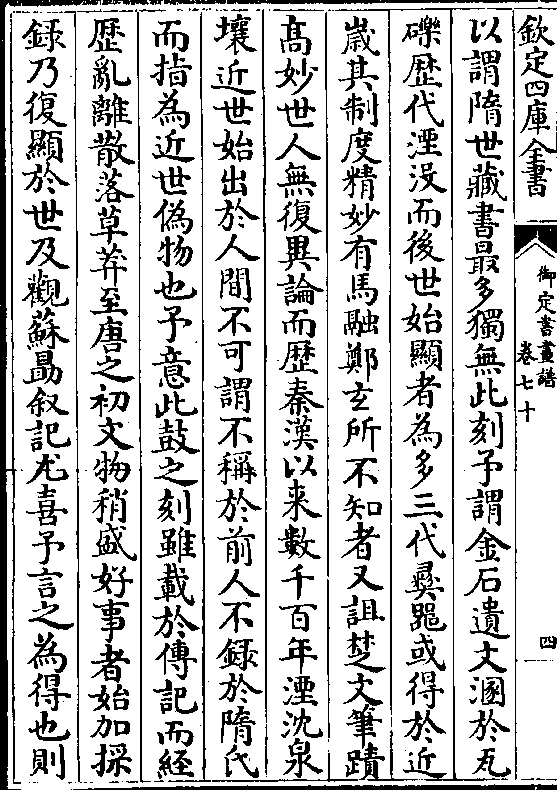 欽定四庫全書
御定書畫譜
卷七十
四
以謂隋世藏書最多獨無此刻予謂金石遺文溷於瓦
礫歴代湮没而後世始顯者為多三代彞噐或得於近
嵗其制度精妙有馬融鄭玄所不知者又詛楚文筆蹟
髙妙世人無復異論而歴秦漢以来數千百年湮沈泉
壤近世始出於人間不可謂不稱於前人不錄於隋氏
而指為近世偽物也予意此鼓之刻雖載於傳記而經
歴亂離散落草莽至唐之初文物稍盛好事者始加採
錄乃復顯於世及觀蘇勗叙記尤喜予言之為得也則